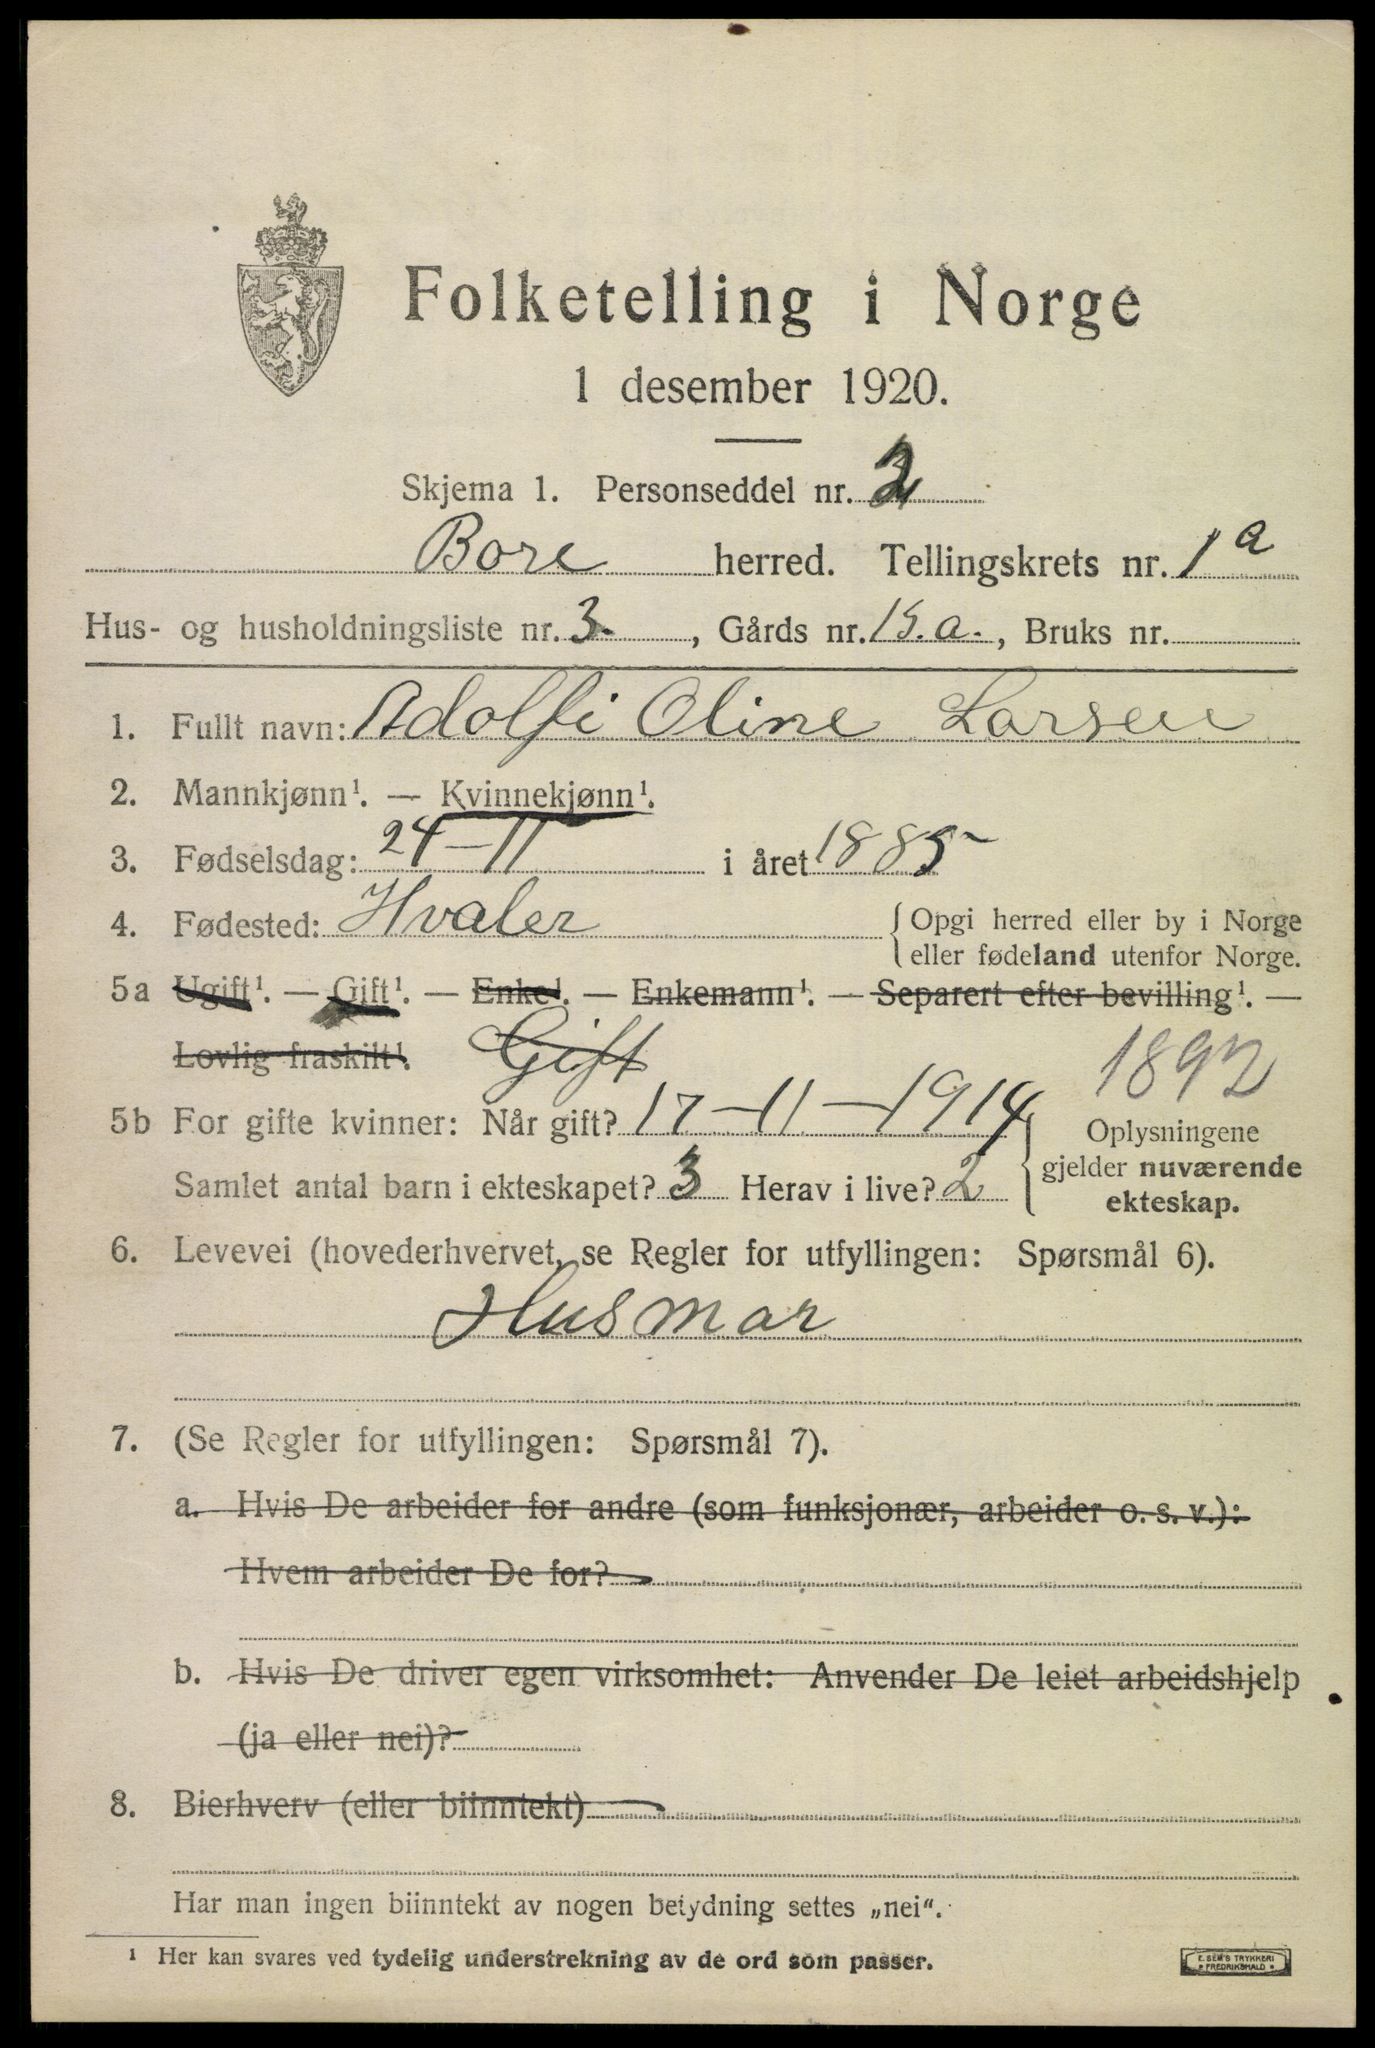 Folketelling i Norge
1 desember 1920.
Skjema 1. Personseddel nr. 2
Bore herred. Tellingskrets nr. 1 a
Hus- og husholdningsliste nr. 3. , Gårds nr. 15.a. , Bruks nr.
1. Fullt navn: Adolfi Oline Larsen
2. Mannkjønn¹. — Kvinnekjønn¹.
3. Fødselsdag: 24-11 i året 1885
4. Fødested: Hvaler { Opgi herred eller by i Norge
eller fødeland utenfor Norge.
5a Ugift¹. — Gift¹. — Enke¹. — Enkemann¹. — Separert efter bevilling¹. —
Lovlig fraskilt¹. Gift 1892
5b For gifte kvinner: Når gift? 17-11-1914 } Oplysningene
gjelder nuværende
Samlet antal barn i ekteskapet? 3 Herav i live? 2 ekteskap.
6. Levevei (hovederhvervet, se Regler for utfyllingen: Spørsmål 6).
Husmor
7. (Se Regler for utfyllingen: Spørsmål 7).
a. Hvis De arbeider for andre (som funksjonær, arbeider o. s. v.):
Hvem arbeider De for?
b. Hvis De driver egen virksomhet: Anvender De leiet arbeidshjelp
(ja eller nei)?
8. Bierhverv (eller biinntekt)
Har man ingen biinntekt av nogen betydning settes „nei“.
¹ Her kan svares ved tydelig understrekning av de ord som passer.
E. SEM'S TRYKKERI
FREDRIKSHALD